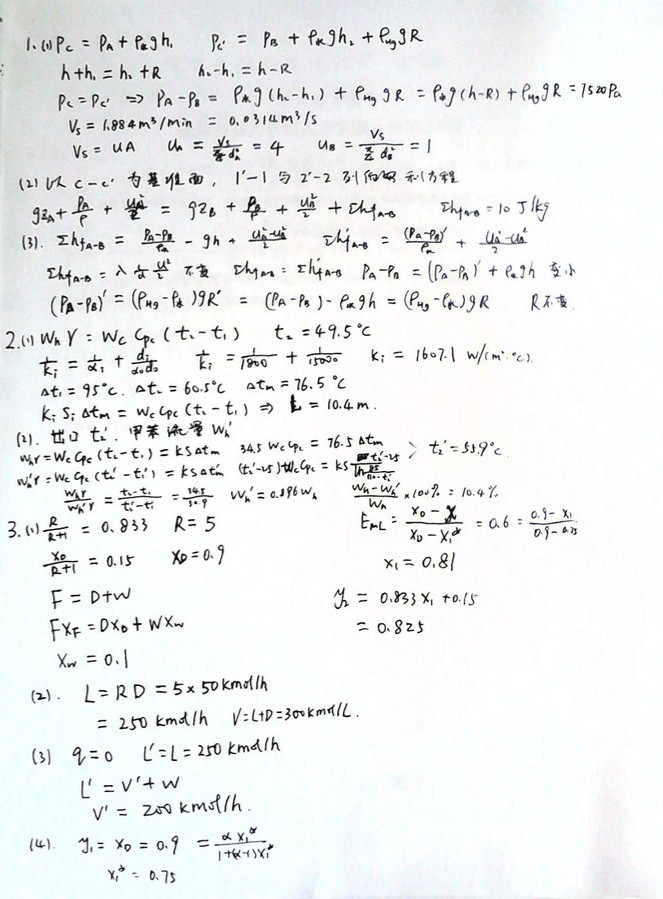 1. (1) P_C = P_A + ρ_水gh₁    P_C' = P_B + ρ_水gh₂ + ρ_Hg gR
h+h₁ = h₂+R    h₂-h₁ = h-R
P_C = P_C' ⇒ P_A-P_B = ρ_水g(h₂-h₁) + ρ_Hg gR = ρ_水g(h-R) + ρ_Hg gR = 7520Pa
V_S = 1.884m³/min = 0.0314m³/s
V_S = uA    u_A = V_S/(π/4 d_A²) = 4    u_B = V_S/(π/4 d_B²) = 1
(2) 以 c-c' 为基准面, 1'-1 与 2'-2 列伯努利方程
gz_A + P_A/ρ + u_A²/2 = gz_B + P_B/ρ + u_B²/2 + Σhf_A-B    Σhf_A-B = 10 J/kg
(3). Σhf_A-B = (P_A-P_B)/ρ_水 - gh + (u_A²-u_B²)/2    Σhf'_A-B = (P_A-P_B)'/ρ_水 + (u_A²-u_B²)/2
Σhf_A-B = λ l/d u²/2 不变    Σhf_A-B = Σhf'_A-B    P_A-P_B = (P_A-P_B)' + ρ_水gh 变小
(P_A-P_B)' = (ρ_Hg-ρ_水)gR' = (P_A-P_B)-ρ_水gh = (ρ_Hg-ρ_水)gR    R不变
2. (1) W_h r = W_c C_pc (t₂-t₁)    t₂ = 49.5°C
1/K_i = 1/α_i + d_i/(α_o d_o)    1/K_i = 1/1800 + 1/15000    K_i = 1607.1 W/(m²·°C).
Δt₁ = 95°C. Δt₂ = 60.5°C    Δt_m = 76.5°C
K_i S_i Δt_m = W_c C_pc (t₂-t₁) ⇒ L = 10.4m.
(2). 出口 t₂', 甲苯流量 W_h'
W_h r = W_c C_pc (t₂-t₁) = KSΔt_m    34.5 W_c C_pc = 76.5 Δt_m
W_h' r = W_c C_pc (t₂'-t₁') = KSΔt_m'    (t₂'-25) W_c C_pc = KS (t₂'-25)/(ln 85/(110-t₂'))    } t₂' = 55.9°C
W_h r/W_h' r = (t₂-t₁)/(t₂'-t₁') = 34.5/30.9    W_h' = 0.896 W_h    (W_h-W_h')/W_h ×100% = 10.4%
3. (1) R/(R+1) = 0.833    R = 5    E_mL = (x_D - x₁)/(x_D - x₁*) = 0.6 = (0.9-x₁)/(0.9-0.75)
x_D/(R+1) = 0.15    x_D = 0.9    x₁ = 0.81
F = D+W    y₂ = 0.833x₁ + 0.15
Fx_F = Dx_D + Wx_w    = 0.825
x_w = 0.1
(2). L = RD = 5×50kmol/h
= 250 kmol/h    V = L+D = 300kmol/L.
(3) q=0    L' = L = 250 kmol/h
L' = V'+W
V' = 200 kmol/h.
(4). y₁ = x_D = 0.9 = αx₁*/(1+(α-1)x₁*)
x₁* = 0.75